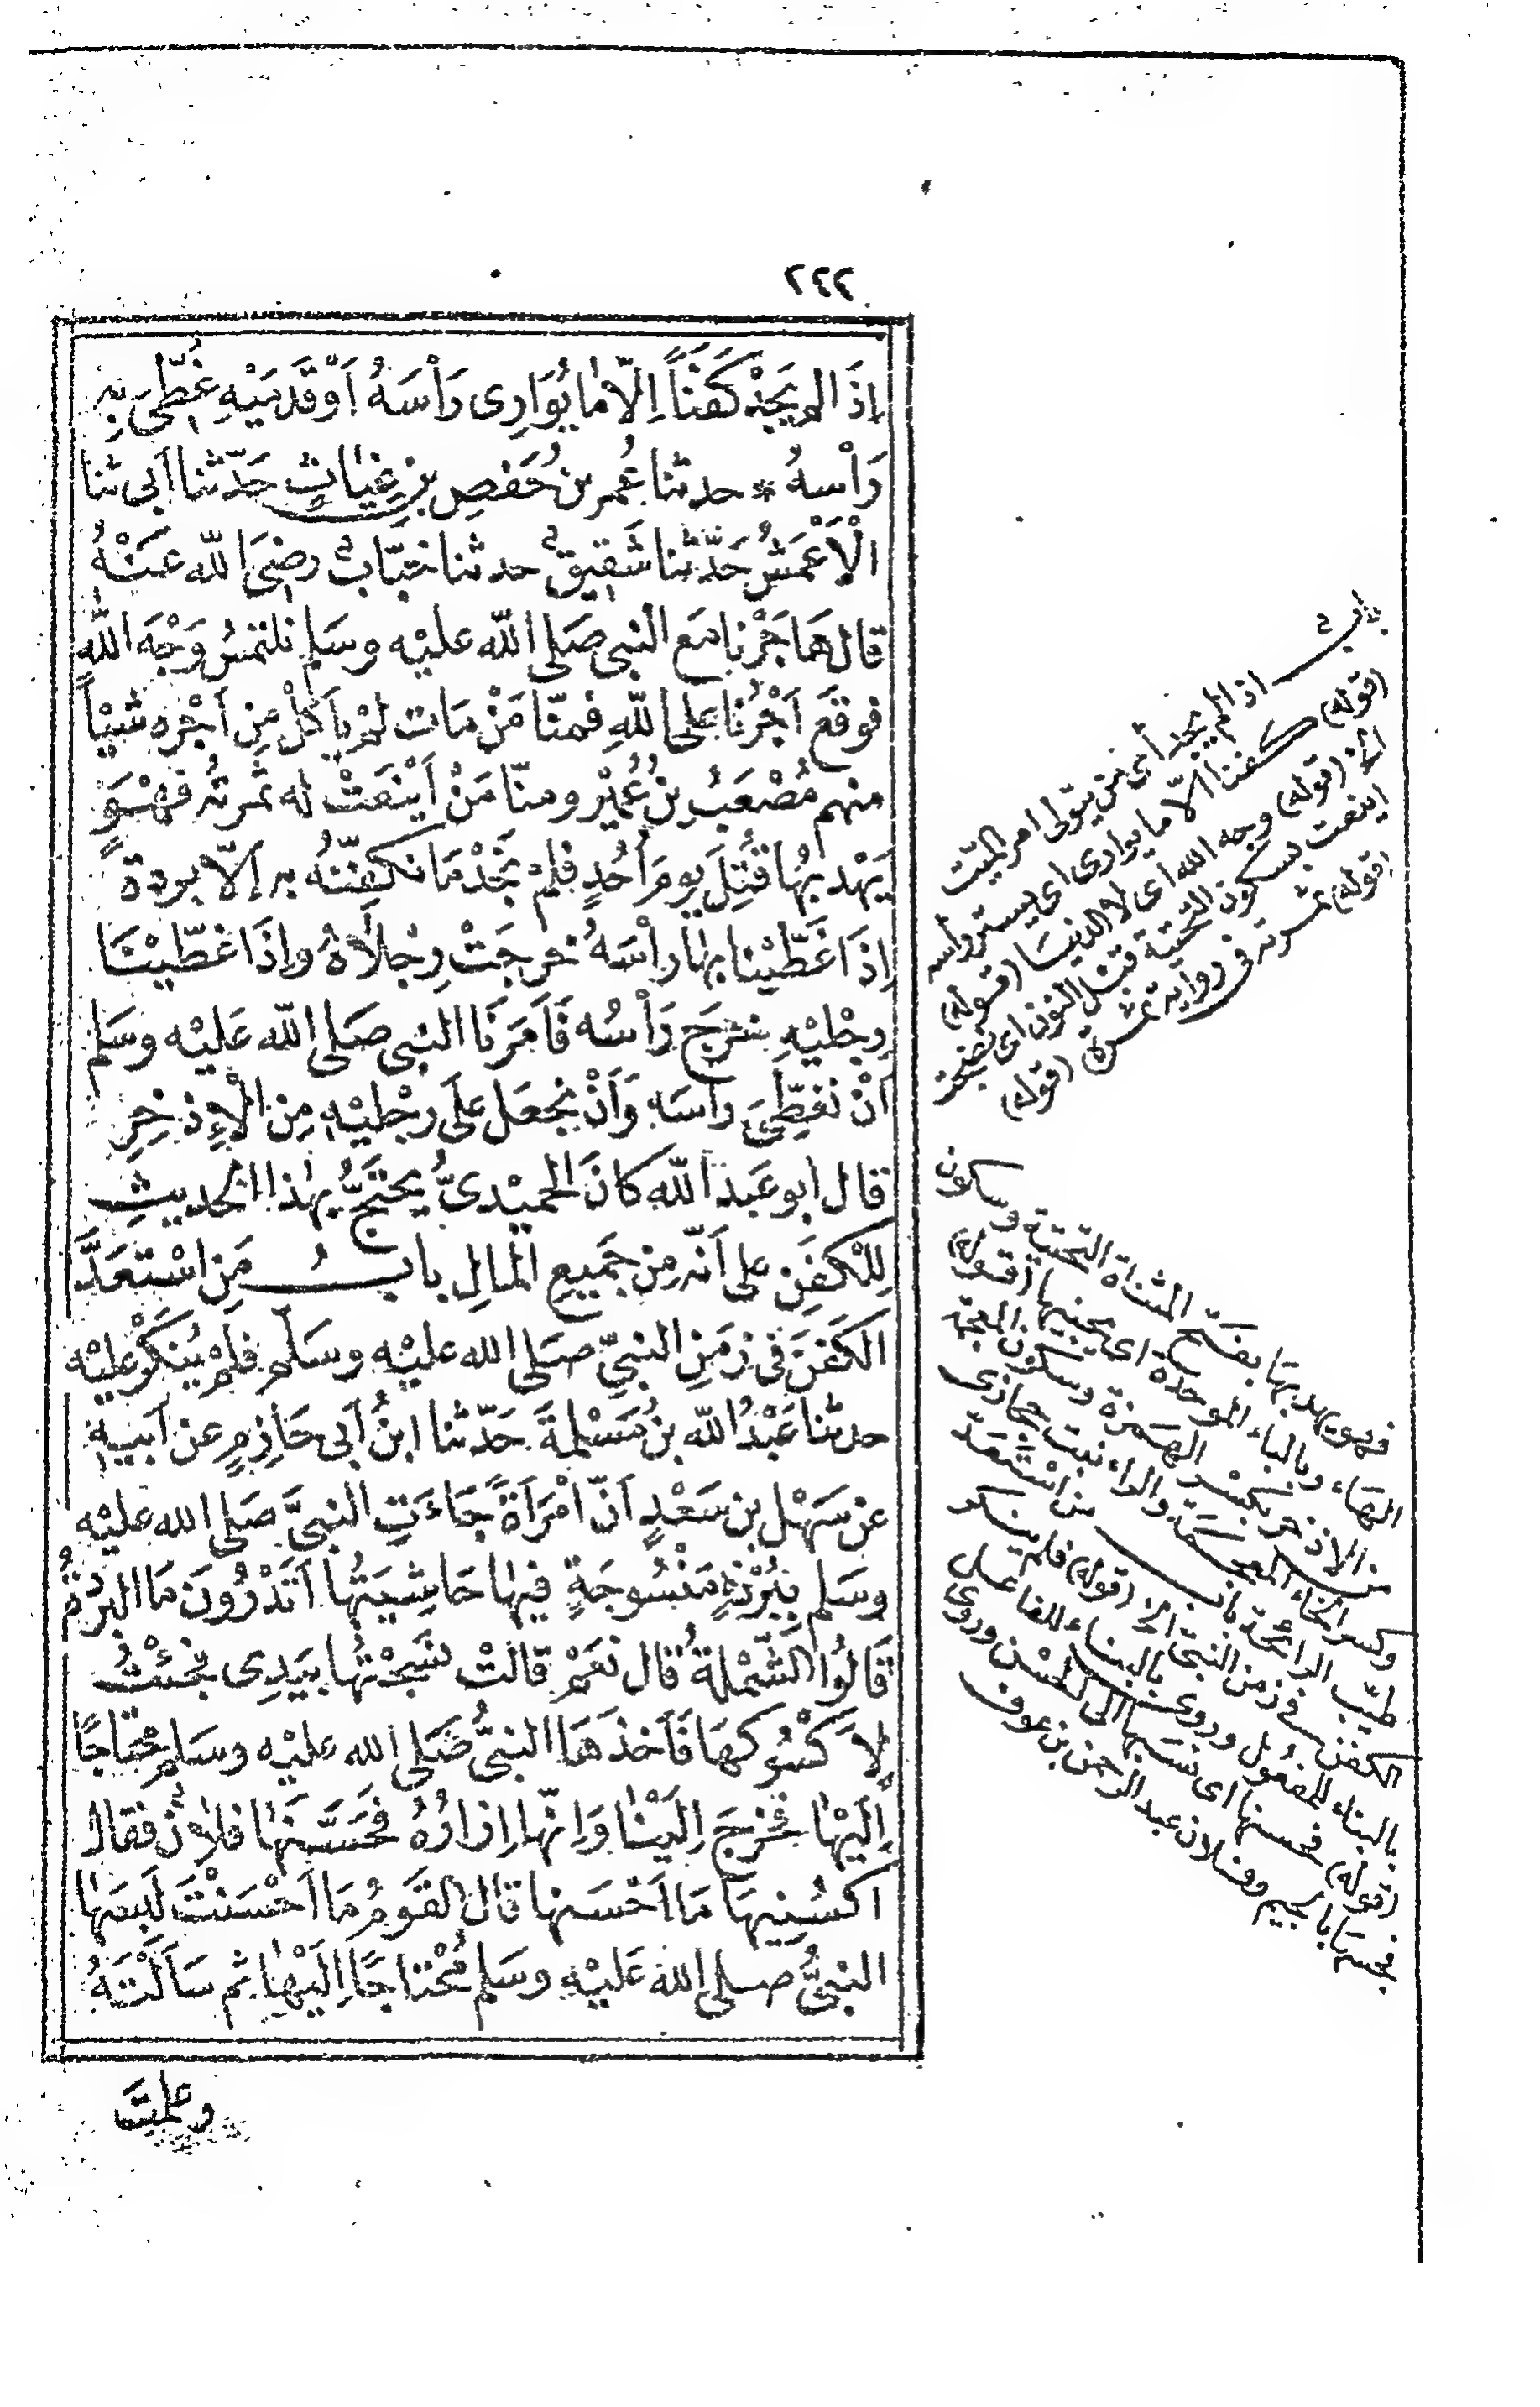 ٢٤٤
إِذَا لم يَجِدْ كَفَناً إِلّا مَا يُوَارِى رَأْسَهُ أَوْ قَدَمَيْهِ غُطِّىَ بِهِ
رَأْسهُ * حدثنا عُمر بنُ حَفصِ بنِ غِيَاثٍ حَدّثنا أبى ثنا
الْأَعْمَشُ حَدَّثنا شَقِيقٌ حدثنا خَبّابٌ رضِىَ اللّه عَنْهُ
قال هَاجَرْنا مَع النبى صَلى اللّه عليْه وسَلم نلتمسُ وَجْهَ اللّهِ
فوقَع أجْرُنا على اللّهِ فمنّا مَنْ مَات لمْ يأكلْ مِن أجْرِهِ شيْئاً
منهم مُصْعَبُ بنُ عُمَيْرٍ ومنّا مَنْ أَيْنَعَتْ له ثمرتُه فهْوَ
يَهْدِبُهَا قُتِلَ يومَ أُحُدٍ فلمْ نَجدْ مَا نكفّنُهُ به إلّا بردة
إذَا غَطّيْنا بهَا رأْسَهُ خرجَتْ رِجْلَاهُ وإذَا غَطّيْنَا
رِجْليْهِ خرَجَ رَأْسُه فَأَمَرَنَا النبى صَلى اللّه عَليْه وسَلم
أنْ نغطِّىَ رأسَه وَأنْ نجعَل علَى رجْليْهِ مِن الْإِذخِرِ
قال أبو عَبد اللّه كانَ الحميْدىُّ يحتجُّ بهٰذا الحديثِ
لِلْكفَنِ على أنّه مِن جَمِيعِ المالِ بابُ مَن اسْتعَدَّ
الكَفَنَ فى زمَنِ النبىِّ صَلى الله عليْه وسَلم فلمْ يُنكَرْ عليْه
حدثنا عَبْدُ اللّه بنُ مَسْلمةَ حَدّثنا ابنُ أبى حَازِمٍ عن أبيهِ
عن سَهْل بن سَعْدٍ أنّ امْرَأةً جَاءَتِ النبىَّ صَلى الله عليْه
وسَلم بِبُرْدَةٍ مَنْسُوجَةٍ فيها حَاشِيَتُها أتَدْرُونَ مَا البُرْدةُ
قَالُوا الشّمْلةُ قال نعَمْ قالَتْ نسَجْتُها بيَدِى فجئْتُ
لِأكْسُوكهَا فَأخذَهَا النبىُّ صَلى الله عليْه وسَلم محتاجًا
إِلَيْهَا فخرَجَ إِلَيْنَا وَإنّها إزَارُهُ فحَسَّنَها فلانٌ فقال
اكسُنِيهَا مَا أحْسَنها قال القَومُ مَا أحْسَنْتَ لَبِسَهَا
النبىُّ صلى الله عَليْه وسَلم مُحْتاجًا إِلَيْها ثم سَألْتَهُ
وعلمْتَ
باب اذا لم يجد أى من يتولى امر الميّت
(قوله) كفنا الّا ما يوارى اى يستر رأسه
الخ (قوله) وجه الله اى لا الدنيا (قوله)
اينعت بسكون التحتية قبل النون اى نضجت
(قوله) ثمرته فى رواية ثمرة (قوله)
فهو يهدبها بفتح المثناة التحتية وسكون
الهاء وبالباء الموحدة اى يجنيها (قوله)
من الاذخر بكسر الهمزة وسكون المعجمة
وكسر الخاء المعجمة والراء نبت حجازى
طيّب الرائحة باب من استعدّ
الكفن فى زمن النبى الخ (قوله) فلم ينكر
بالبناء للمفعول وروى بالبناء للفاعل
(قوله) فحسنها اى نسبها الى الحسن وروى
فجسها بالجيم وفلان عبد الرحمن بن عوف